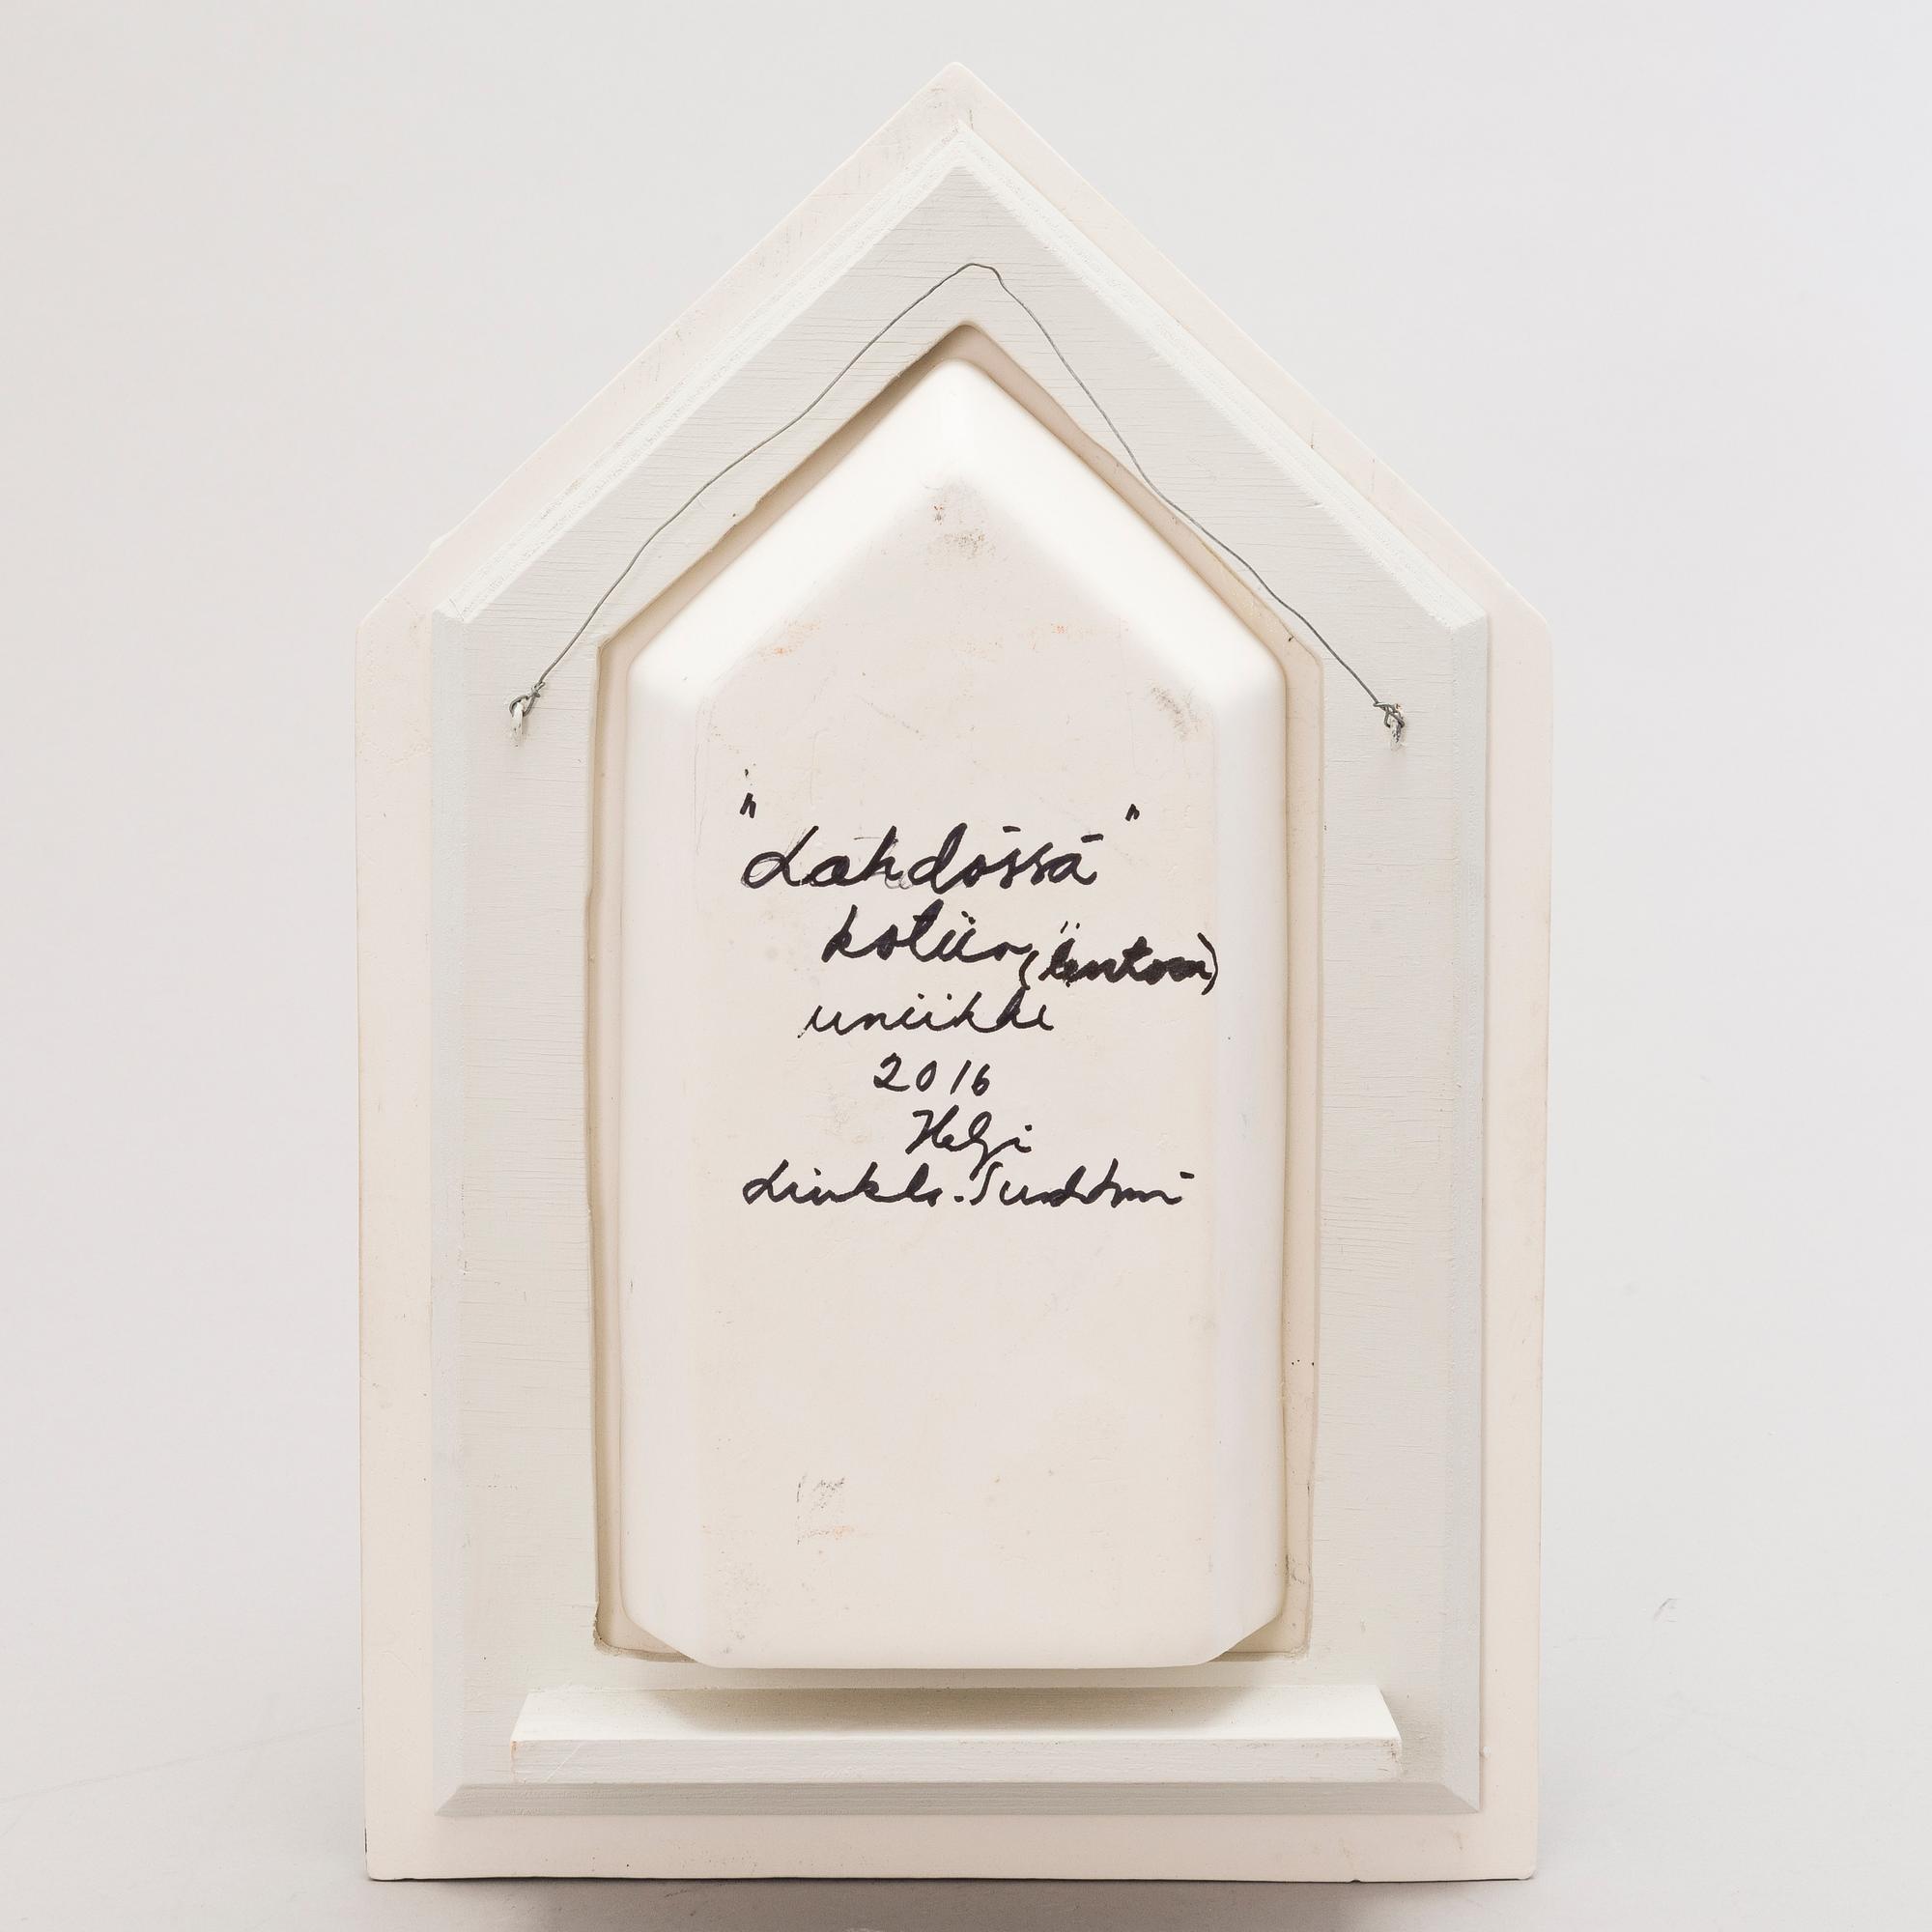 "Lähdössä"
kotiin (lentoon)
uniikki
2016
Helji
Liukko-Sundström